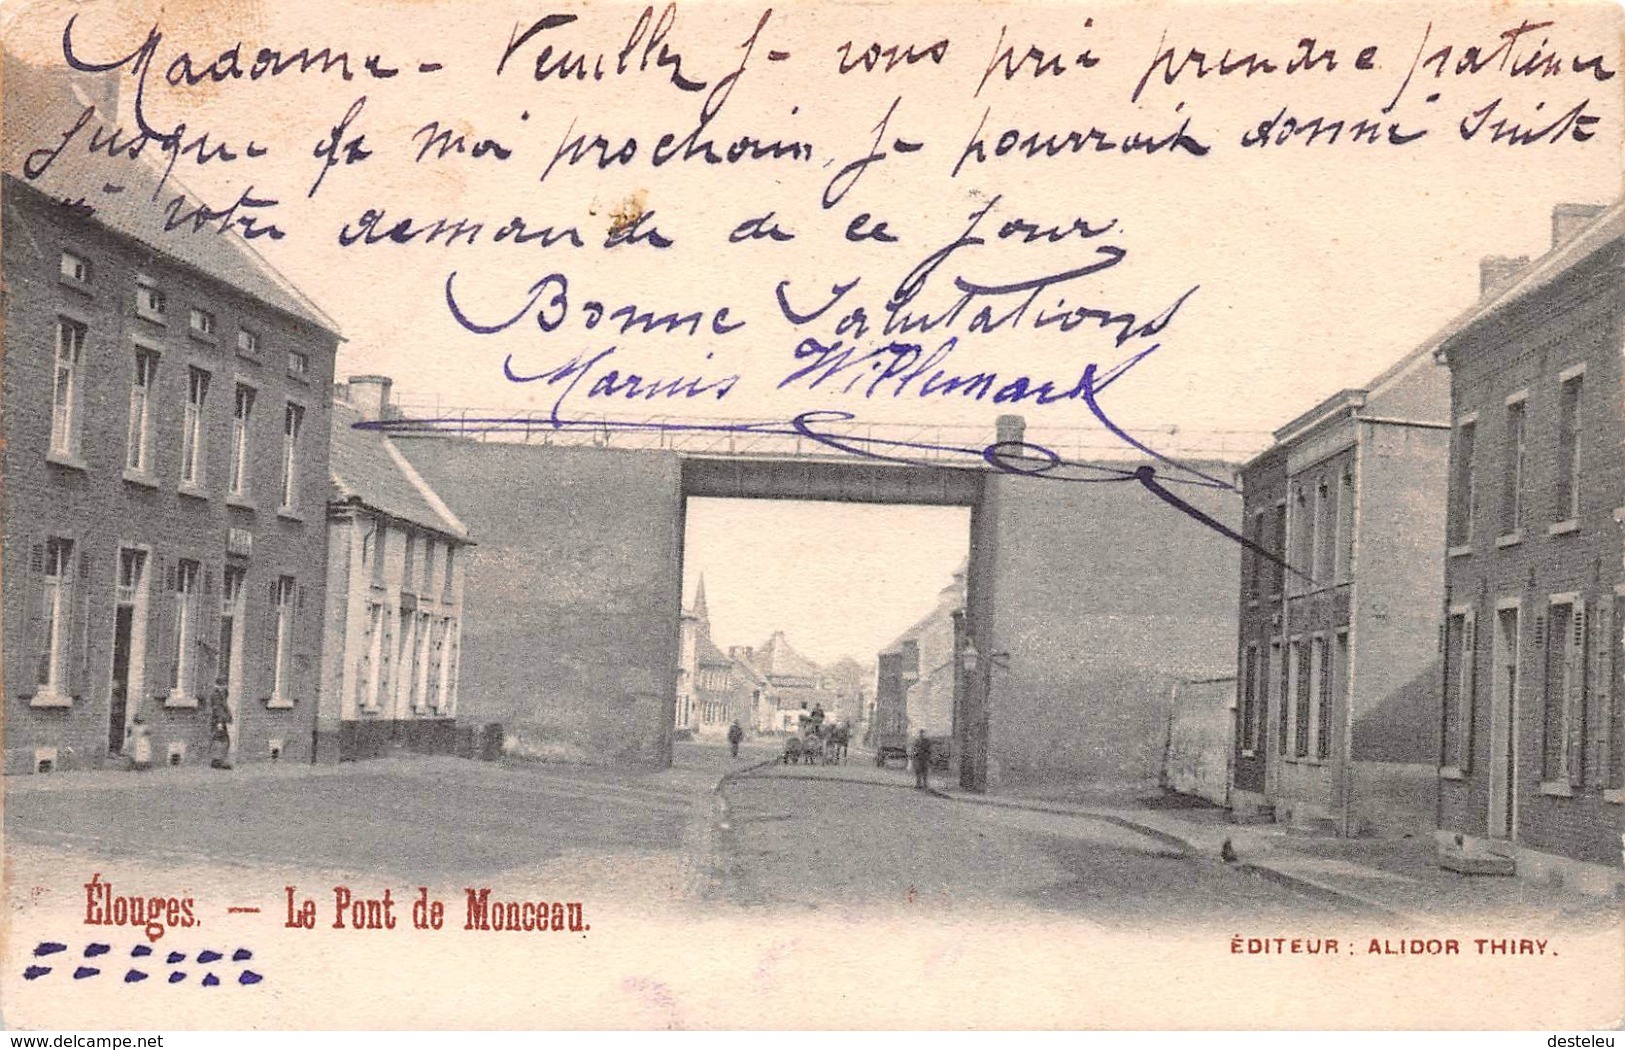 Madame - Veuillez Je vous prie prendre patience
jusque le moi prochain, Je pourrait donné suite
à votre demande de ce jour.
Bonne Salutations
Marius Willemark
Élouges. — Le Pont de Monceau.
ÉDITEUR : ALIDOR THIRY.
www.delcampe.net
desteleu